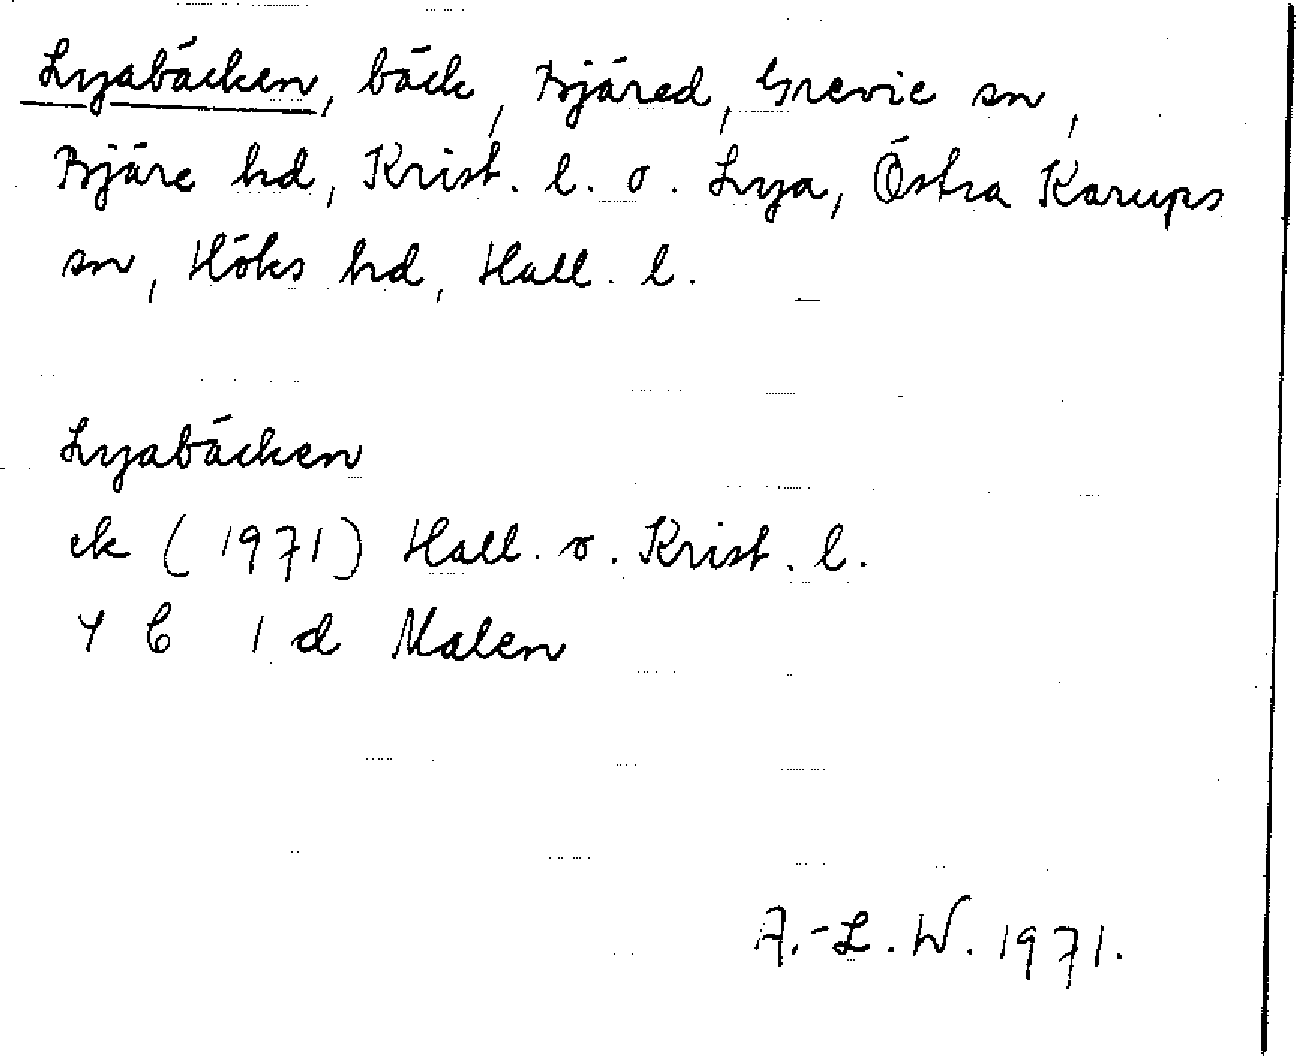 Lyabäcken, bäck, Bjäred, Grevie sn,
Bjäre hd, Krist. l. o. Lya, Östra Karups
sn, Höks hd, Hall. l.
Lyabäcken
ek (1971) Hall. o. Krist. l.
4 C 1 d Malen
A.-L. W. 1971.